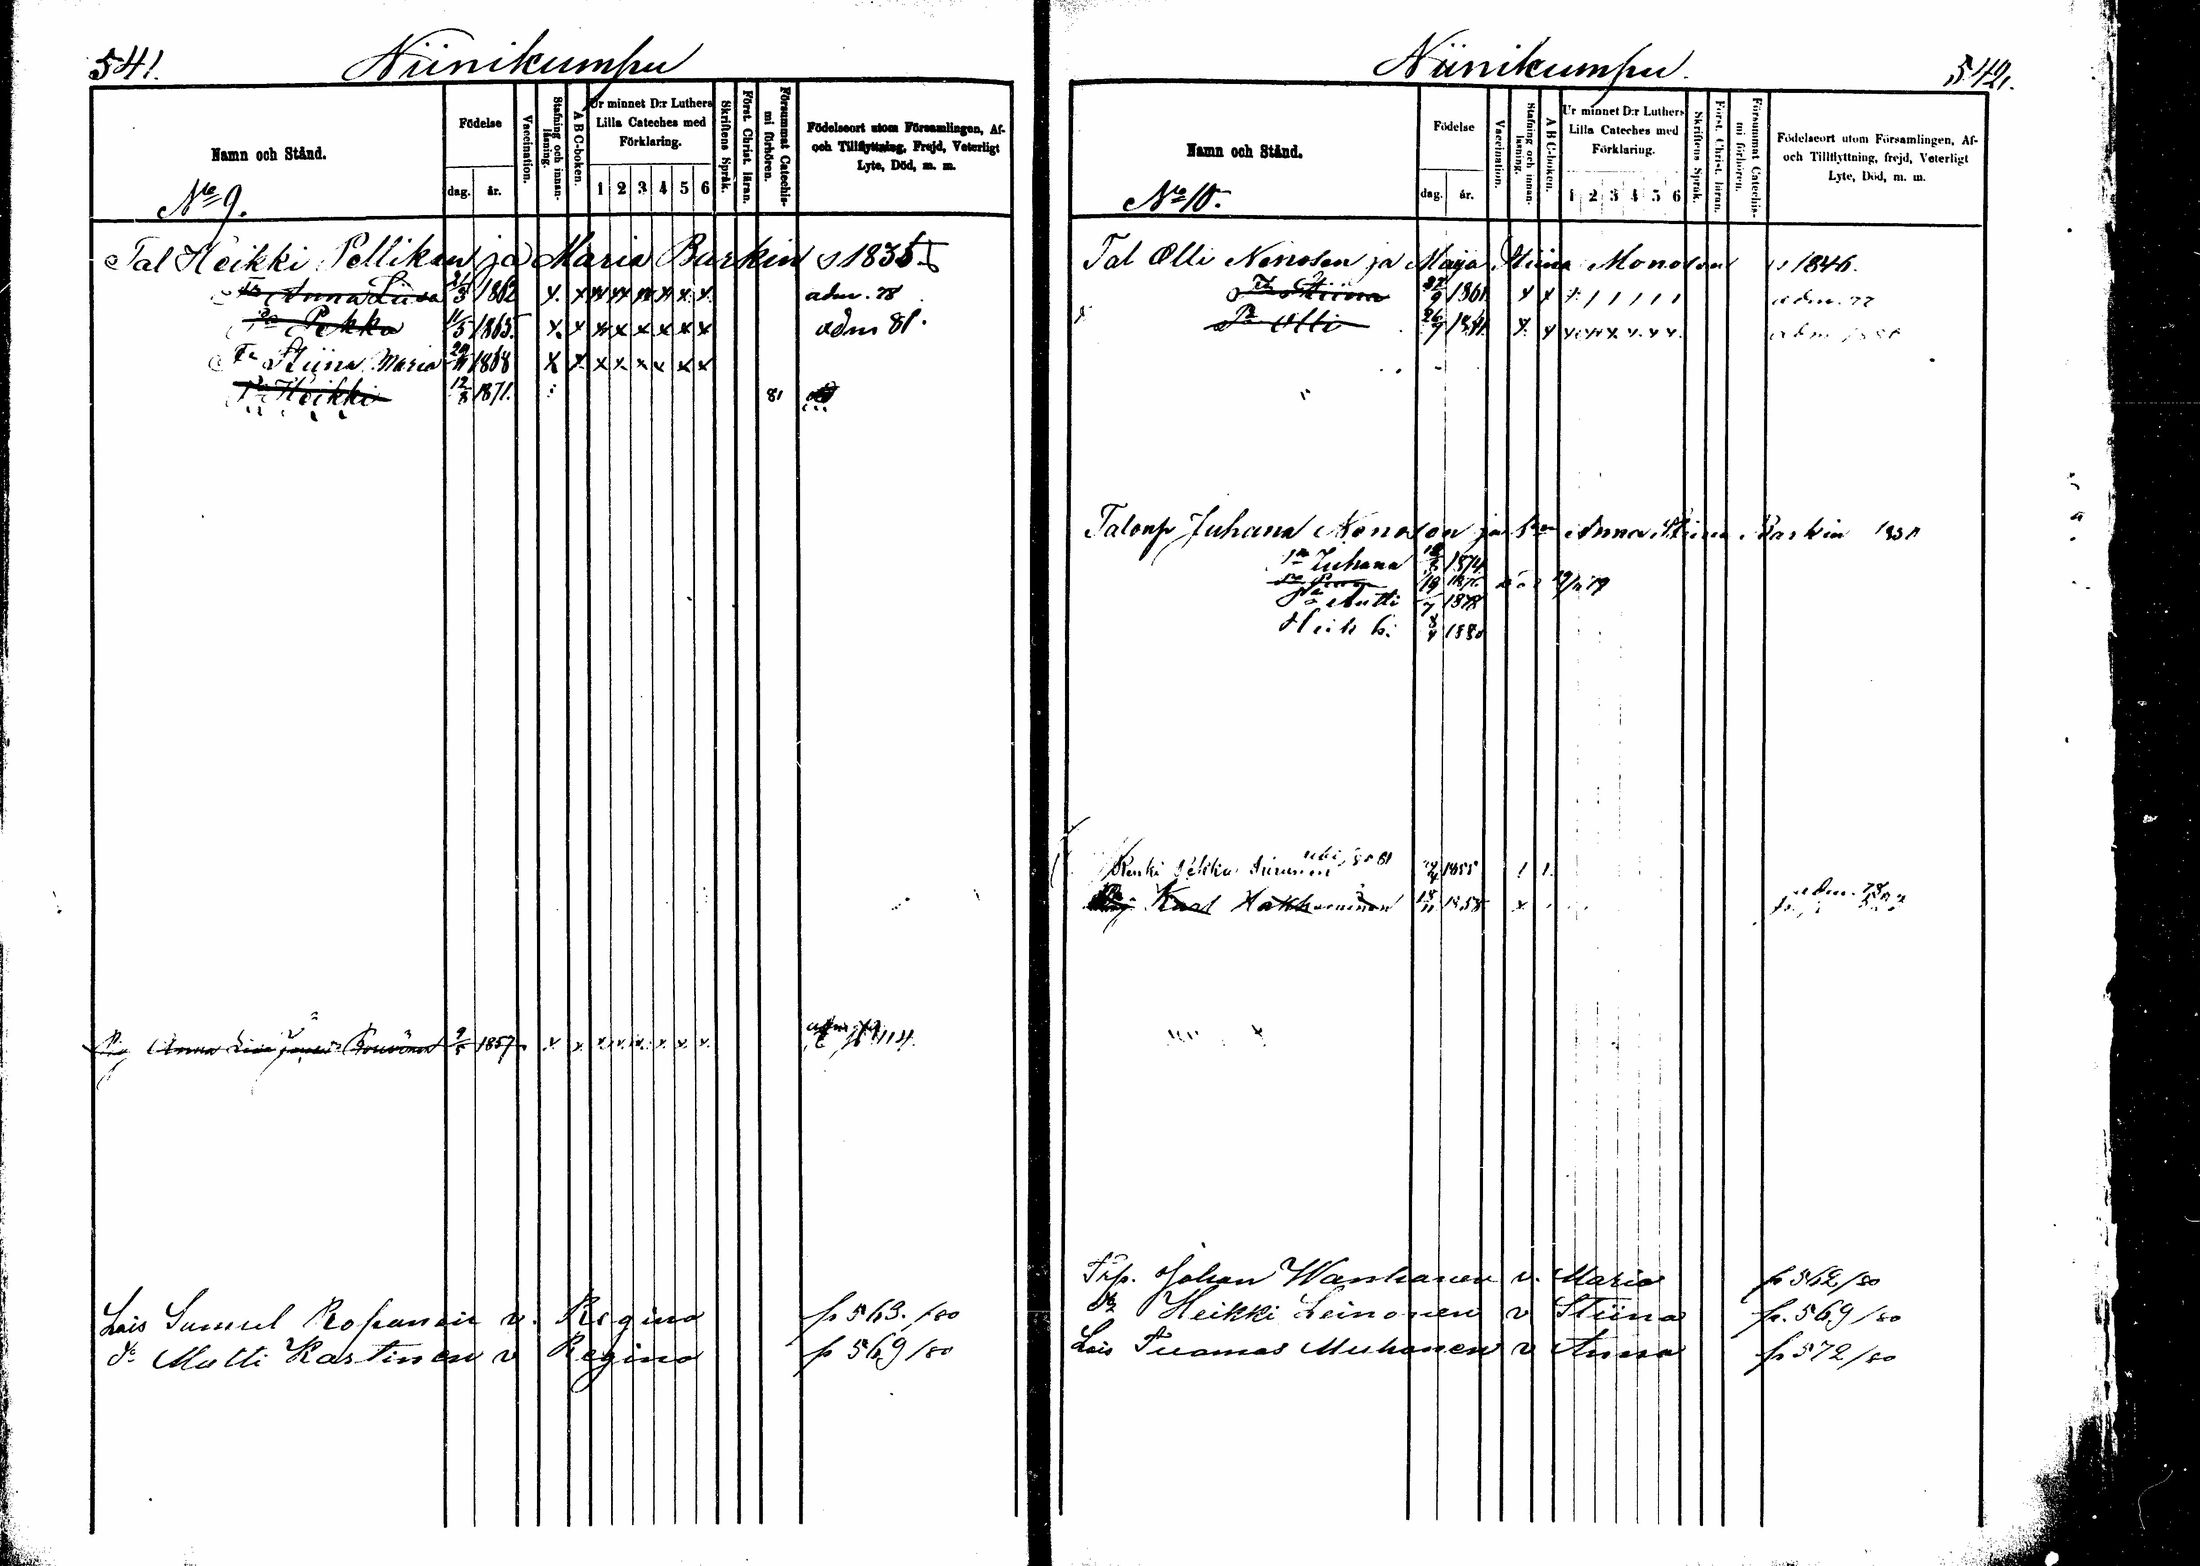 541.
Niinikumpu
Namn och Stånd.
No 9.
Födelse
dag.
år.
Vaccination.
Stafning och innan-läsning.
A B C-boken.
Ur minnet D:r Luthers
Lilla Cateches med
Förklaring.
1 2 3 4 5 6
Skriftens Språk.
Först. Christ. läran.
Försummat Catechis-mi förhören.
Födelseort utom Församlingen, Af-
och Tillflyttning, Frejd, Veterligt
Lyte, Död, m. m.
Tal Heikki Pellikan ja Maria Barkin s 1835
Anna Liisa 1862 x x x x x x x x adm. 78
Pa Pekka 11/5 1865 x x x x x x x x adm 81.
Tr Stiina Maria 1868 x x x x x x x x
Pa Heikki 12/8 1871. 81
Anna Liisa 9/5 1857 x x x x x x x x
Lois Samuel Roponen v. Regina p 563./80
do Matti Kastinen v Regina p 569/80
542.
Niinikumpu.
Namn och Stånd.
No 10.
Födelse
dag.
år.
Vaccination.
Stafning och innan-läsning.
A B C-boken.
Ur minnet D:r Luthers
Lilla Cateches med
Förklaring.
1 2 3 4 5 6
Skriftens Språk.
Först. Christ. läran.
Försummat Catechis-mi förhören.
Födelseort utom Församlingen, Af-
och Tillflyttning, frejd, Veterligt
Lyte, Död, m. m.
Tal Olli Nenosen ja Maija Stiina Monosen s 1846.
Tr Stiina 1861 x x adm. 77
Pa Olli 26/9 x x x x x x x x
Talonp Juhana Nenosen ja Anna Stiina Barkin
Pa Juhana 1874
Antti 1878
Heikki 8/4 1880
Renki Pekka 1855
Karl 1858 x adm. 78
Johan Wanhanen v. Maria p 562/80
do Heikki Leinonen v Stiina p. 569/80
Lois Tuomas Muhonen v Anna p 572/80